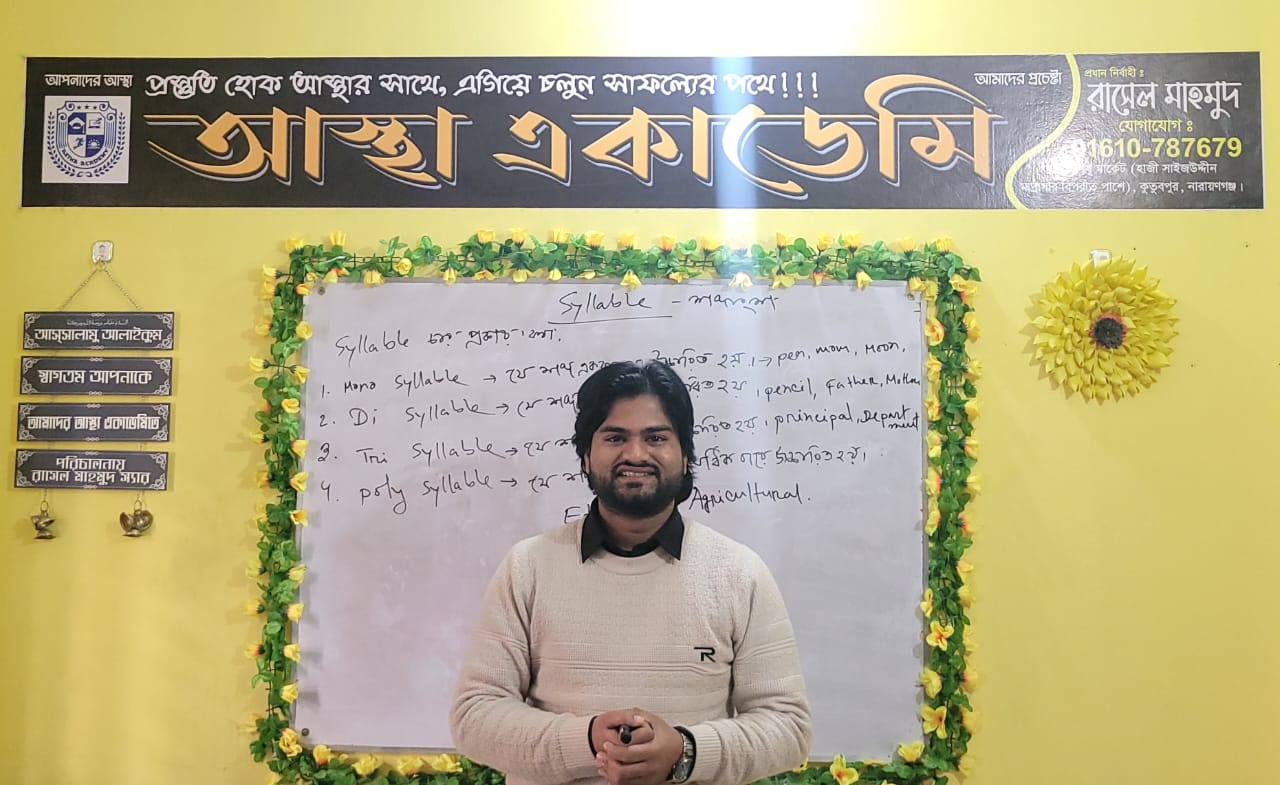 আপনাদের আস্থা
প্রস্তুতি হোক আস্থার সাথে, এগিয়ে চলুন সাফল্যের পথে!!!
আমাদের প্রচেষ্টা
আস্থা একাডেমি
প্রধান নির্বাহী ঃ
রাসেল মাহমুদ
যোগাযোগ ঃ
01610-787679
মার্কেট (হাজী সাইজউদ্দীন
বিপরীত পাশে), কুতুবপুর, নারায়ণগঞ্জ।
আস্সালামু আলাইকুম
স্বাগতম আপনাকে
আমাদের আস্থা একাডেমিতে
পরিচালনায়
রাসেল মাহমুদ স্যার
Syllable - শব্দাংশ
Syllable চার প্রকার। যথা:
1. Mono Syllable → যে শব্দ উচ্চারিত হয়। → pen, mom, moon,
2. Di Syllable → যে হয়, pencil, Father, Mother
3. Tri Syllable → যে হয়, principal, Depart
ment
4. poly Syllable → যে ভাবে উচ্চারিত হয়।
Agricultural.
R